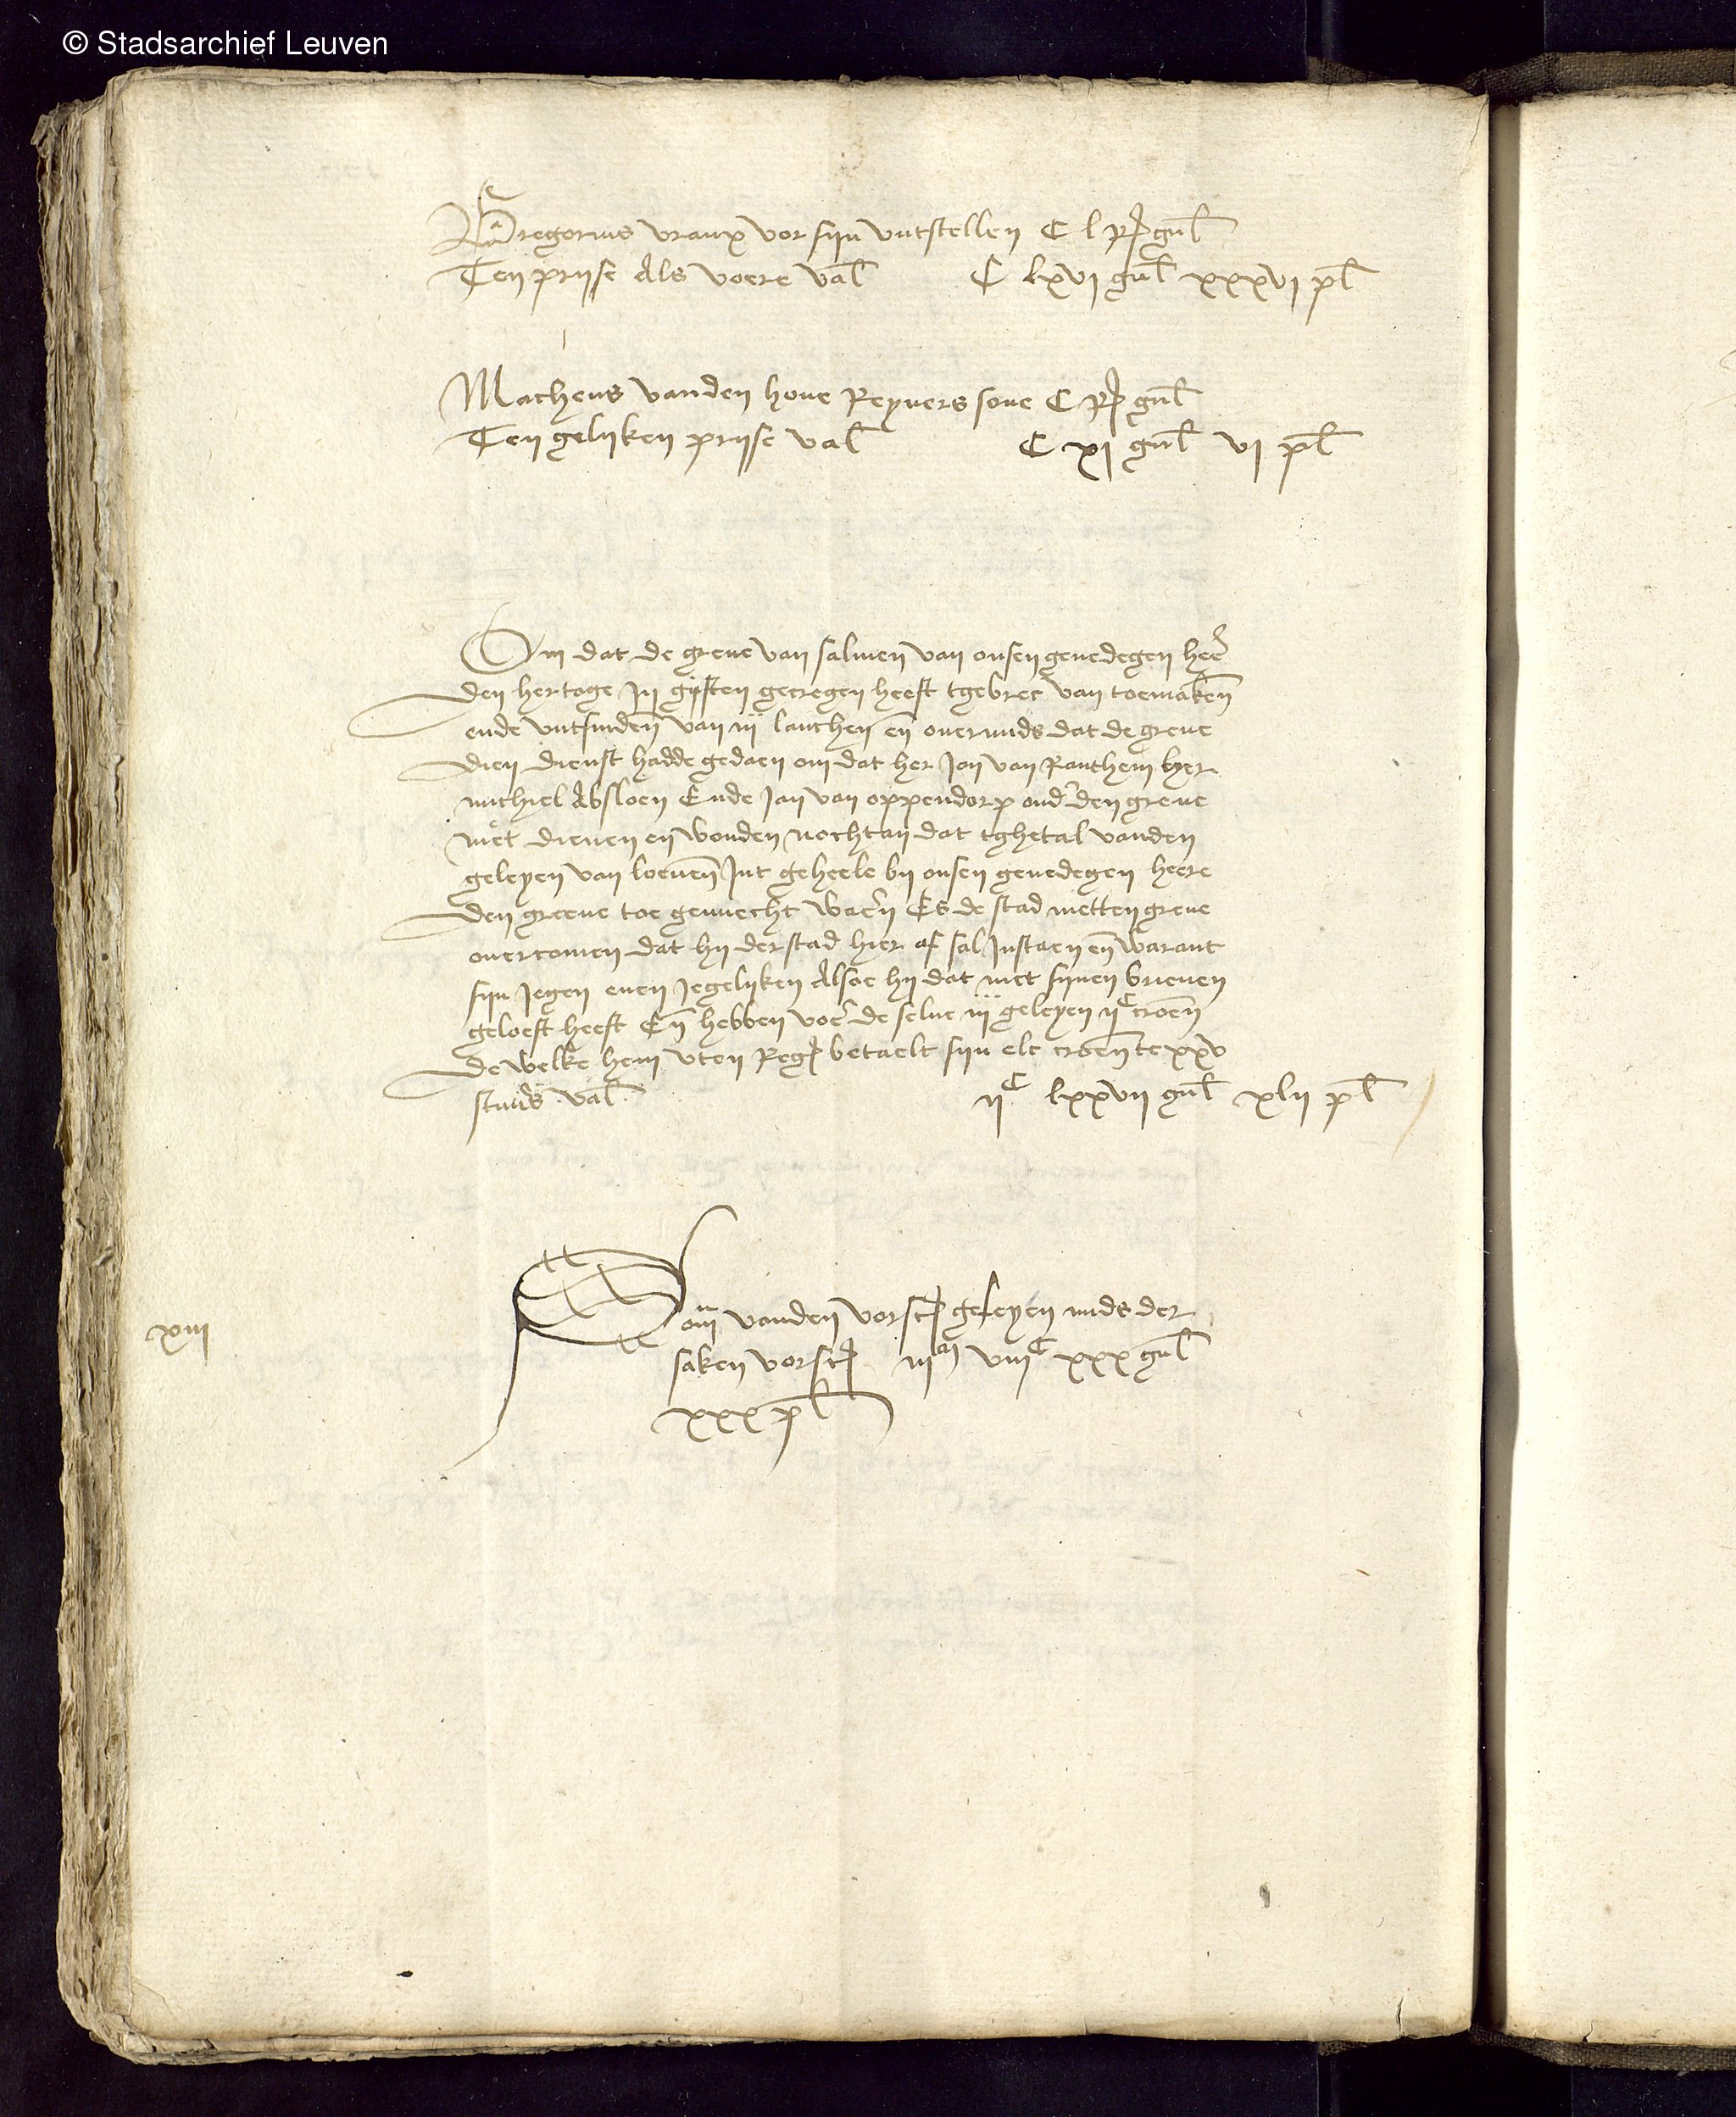 © Stadsarchief Leuven
Gregorius vranx vor sijn vutstellen C l R gul
Ten prijse Als voere val C lxvi gul xxxvi pl
Matheus vanden hove Reyners sone C R gul
Ten gelijken prijse val C xi gul vi pl
Om dat de greve van salmen van onsen genedegen heer
den hertoge In giften gecregen heeft tgebrec van toemaken
ende vutsinden van iij lanchen en overmids dat de greve
dien dienst hadde gedaen om dat her Jan van Ranthem her
michiel Absloen Ende Jan van oppendorp onder den greve
niet dienen en wouden nochtan dat tghetal vanden
geleyen van loeven Int geheele bij onsen genedegen heere
den greeve toe gevuecht waern Es de stad metten greve
overcomen dat hij der stad hier af sal Instaen en warant
sijn Jegen enen Jegelijken Alsoe hij dat met sijnen brieven
geloeft heeft En hebben voer de selve iij geleyen ijC croen
de welke hem vten Reg betaelt sijn elc croen te xxv
stuvers val ijC lxxvij gul xlij pl
Som vanden vorsc geleyen mids der
xiij
saken vorsc iijm viijC xxx gul
xxx pl